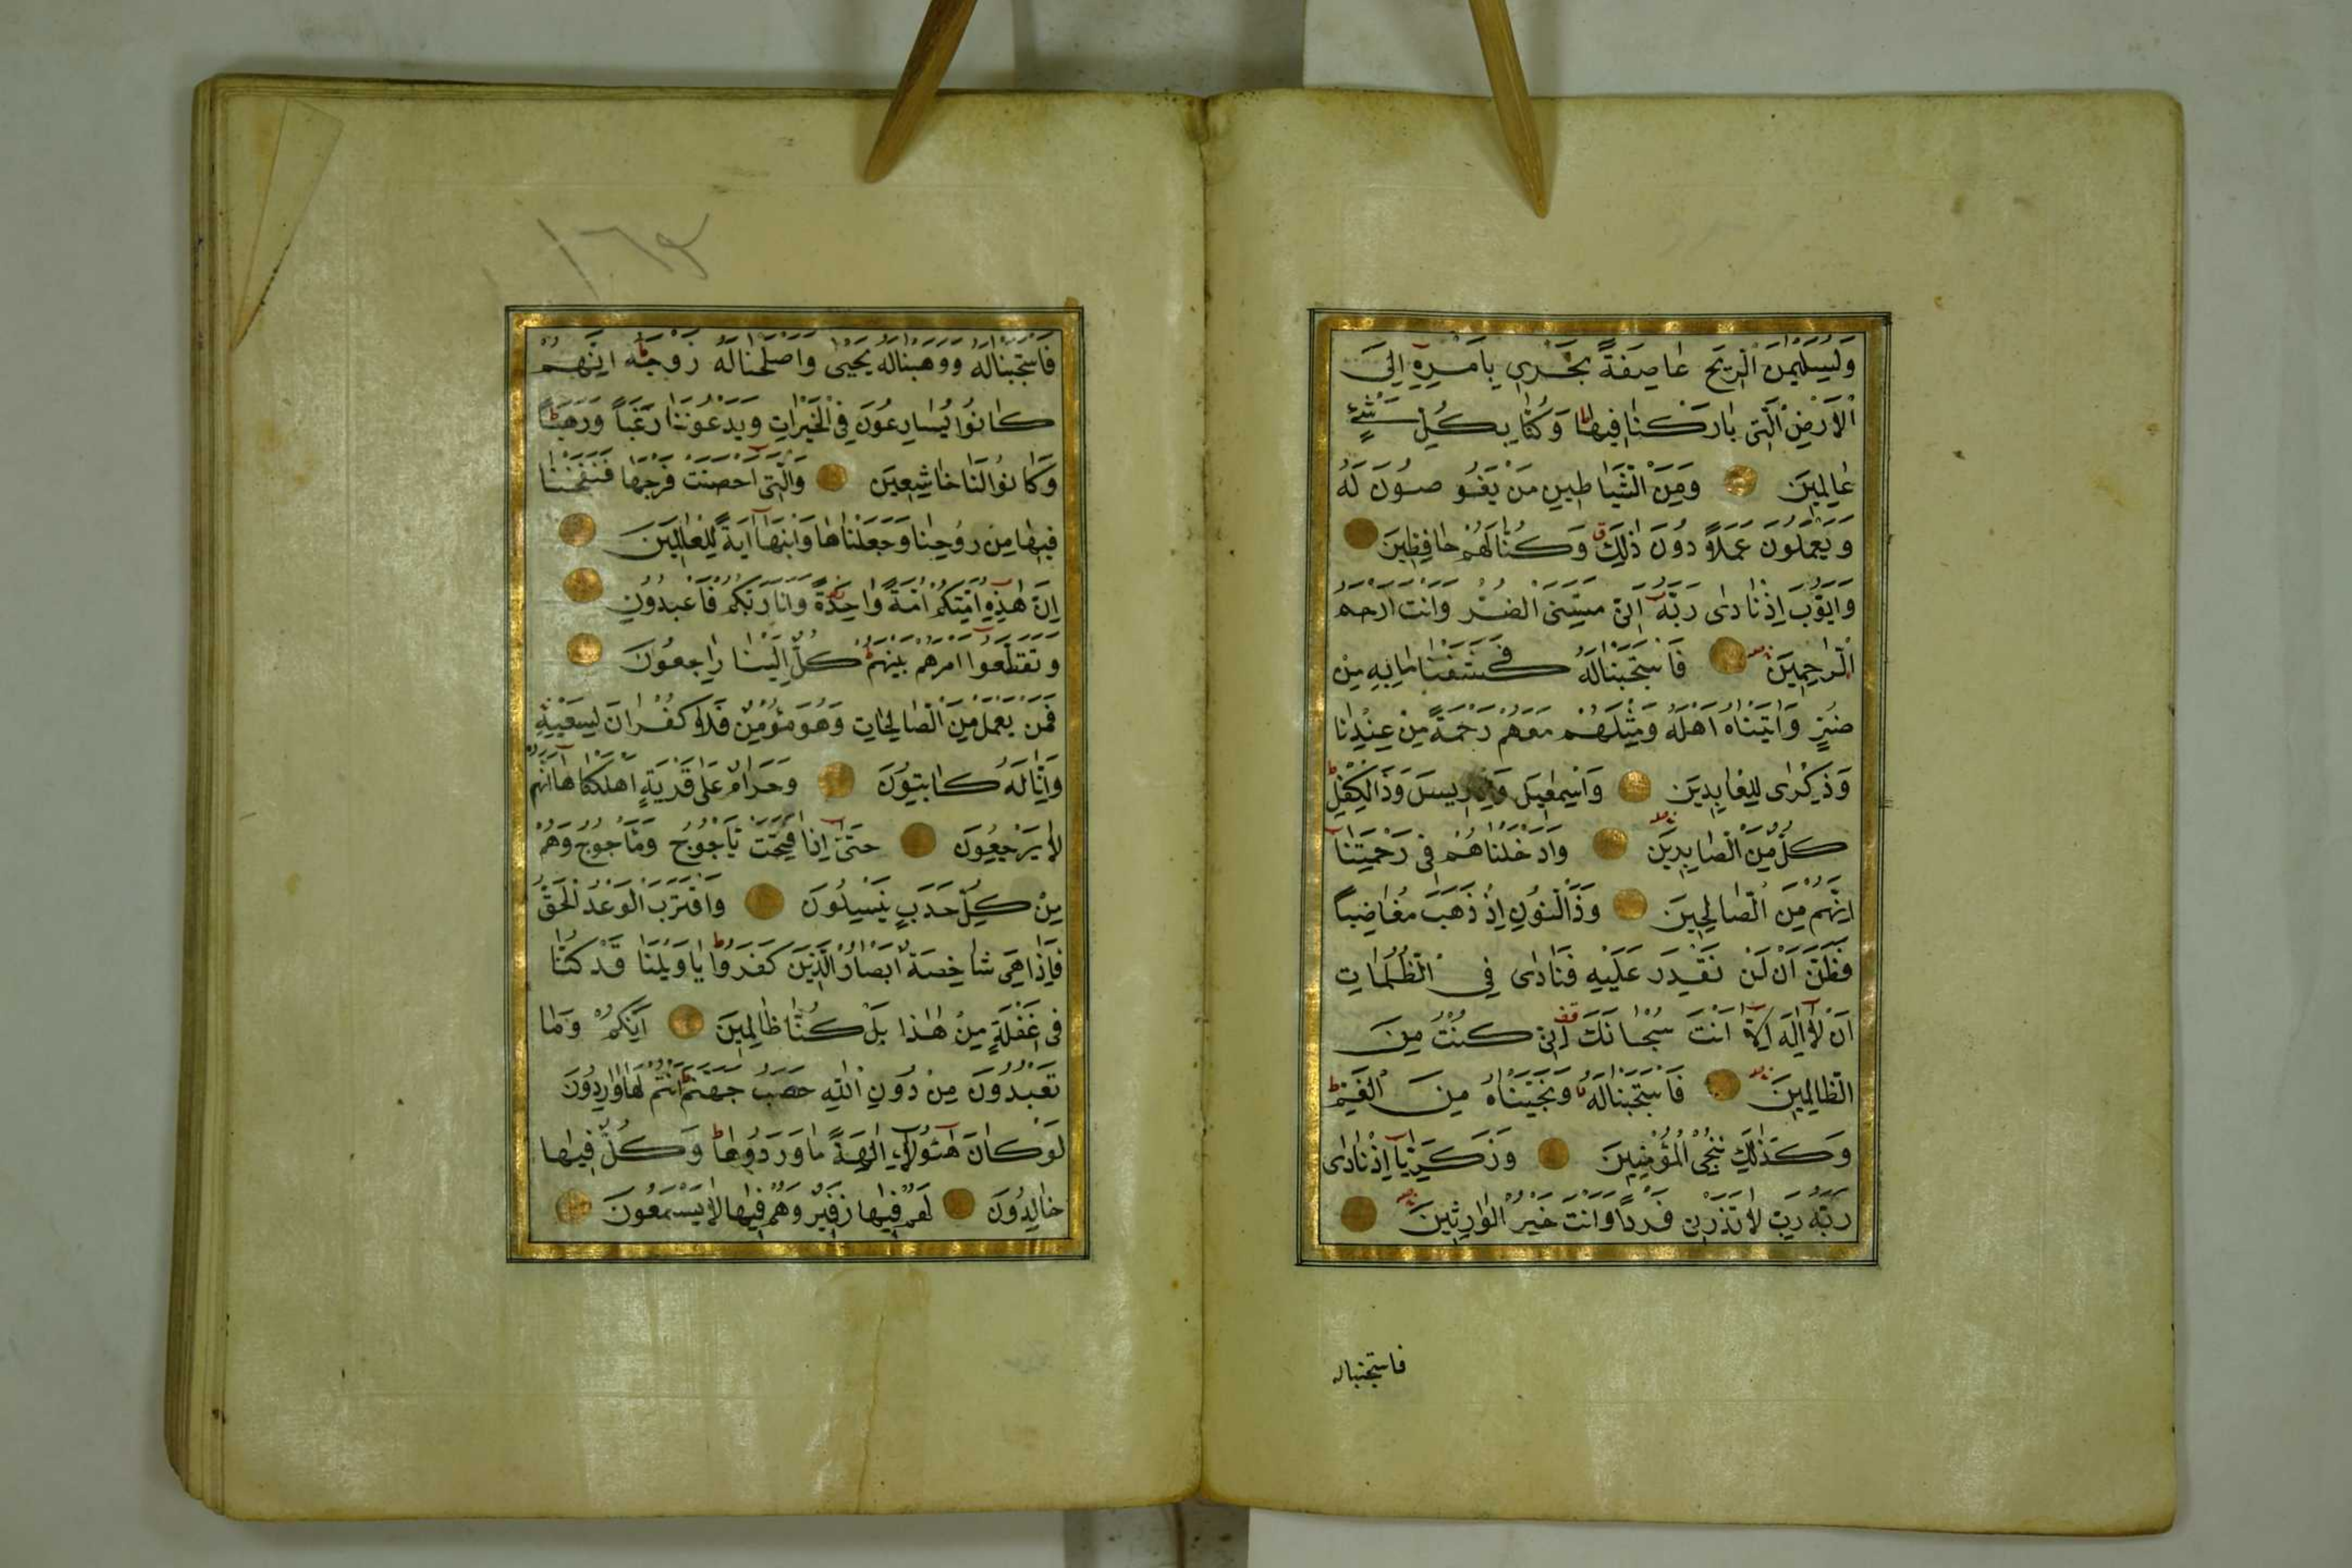 وَلِسُلَيْمٰنَ الرّٖيحَ عَاصِفَةً تَجْرٖى بِاَمْرِهٖٓ اِلَى
الْاَرْضِ الَّتٖى بَارَكْنَا فٖيهَا وَكُنَّا بِكُلِّ شَىْءٍ
عَالِمٖينَ وَمِنَ الشَّيَاطٖينِ مَنْ يَغُوصُونَ لَهُ
وَيَعْمَلُونَ عَمَلاً دُونَ ذٰلِكَ وَكُنَّا لَهُمْ حَافِظٖينَ
وَاَيُّوبَ اِذْ نَادٰى رَبَّهُٓ اَنّٖى مَسَّنِىَ الضُّرُّ وَاَنْتَ اَرْحَمُ
الرَّاحِمٖينَ فَاسْتَجَبْنَا لَهُ فَكَشَفْنَا مَا بِهٖ مِنْ
ضُرٍّ وَاٰتَيْنَاهُ اَهْلَهُ وَمِثْلَهُمْ مَعَهُمْ رَحْمَةً مِنْ عِنْدِنَا
وَذِكْرٰى لِلْعَابِدٖينَ وَاِسْمٰعٖيلَ وَاِدْرٖيسَ وَذَا الْكِفْلِ
كُلٌّ مِنَ الصَّابِرٖينَ وَاَدْخَلْنَاهُمْ فٖى رَحْمَتِنَا
اِنَّهُمْ مِنَ الصَّالِحٖينَ وَذَا النُّونِ اِذْ ذَهَبَ مُغَاضِباً
فَظَنَّ اَنْ لَنْ نَقْدِرَ عَلَيْهِ فَنَادٰى فِى الظُّلُمَاتِ
اَنْ لَٓا اِلٰهَ اِلَّٓا اَنْتَ سُبْحَانَكَ اِنّٖى كُنْتُ مِنَ
الظَّالِمٖينَ فَاسْتَجَبْنَا لَهُ وَنَجَّيْنَاهُ مِنَ الْغَمِّ
وَكَذٰلِكَ نُنْجِى الْمُؤْمِنٖينَ وَزَكَرِيَّٓا اِذْ نَادٰى
رَبَّهُ رَبِّ لَا تَذَرْنٖى فَرْداً وَاَنْتَ خَيْرُ الْوَارِثٖينَ
فاستجبنا له
١٦٣
فَاسْتَجَبْنَا لَهُ وَوَهَبْنَا لَهُ يَحْيٰى وَاَصْلَحْنَا لَهُ زَوْجَهُ اِنَّهُمْ
كَانُوا يُسَارِعُونَ فِى الْخَيْرَاتِ وَيَدْعُونَنَا رَغَباً وَرَهَباً
وَكَانُوا لَنَا خَاشِعٖينَ وَالَّتٖٓى اَحْصَنَتْ فَرْجَهَا فَنَفَخْنَا
فٖيهَا مِنْ رُوحِنَا وَجَعَلْنَاهَا وَابْنَهَٓا اٰيَةً لِلْعَالَمٖينَ
اِنَّ هٰذِهٖٓ اُمَّتُكُمْ اُمَّةً وَاحِدَةً وَاَنَا رَبُّكُمْ فَاعْبُدُونِ
وَتَقَطَّعُٓوا اَمْرَهُمْ بَيْنَهُمْ كُلٌّ اِلَيْنَا رَاجِعُونَ
فَمَنْ يَعْمَلْ مِنَ الصَّالِحَاتِ وَهُوَ مُؤْمِنٌ فَلَا كُفْرَانَ لِسَعْيِهٖ
وَاِنَّا لَهُ كَاتِبُونَ وَحَرَامٌ عَلٰى قَرْيَةٍ اَهْلَكْنَاهَٓا اَنَّهُمْ
لَا يَرْجِعُونَ حَتّٰٓى اِذَا فُتِحَتْ يَاْجُوجُ وَمَاْجُوجُ وَهُمْ
مِنْ كُلِّ حَدَبٍ يَنْسِلُونَ وَاقْتَرَبَ الْوَعْدُ الْحَقُّ
فَاِذَا هِىَ شَاخِصَةٌ اَبْصَارُ الَّذٖينَ كَفَرُوا يَا وَيْلَنَا قَدْ كُنَّا
فٖى غَفْلَةٍ مِنْ هٰذَا بَلْ كُنَّا ظَالِمٖينَ اِنَّكُمْ وَمَا
تَعْبُدُونَ مِنْ دُونِ اللّٰهِ حَصَبُ جَهَنَّمَ اَنْتُمْ لَهَا وَارِدُونَ
لَوْ كَانَ هٰٓؤُلَٓاءِ اٰلِهَةً مَا وَرَدُوهَا وَكُلٌّ فٖيهَا
خَالِدُونَ لَهُمْ فٖيهَا زَفٖيرٌ وَهُمْ فٖيهَا لَا يَسْمَعُونَ